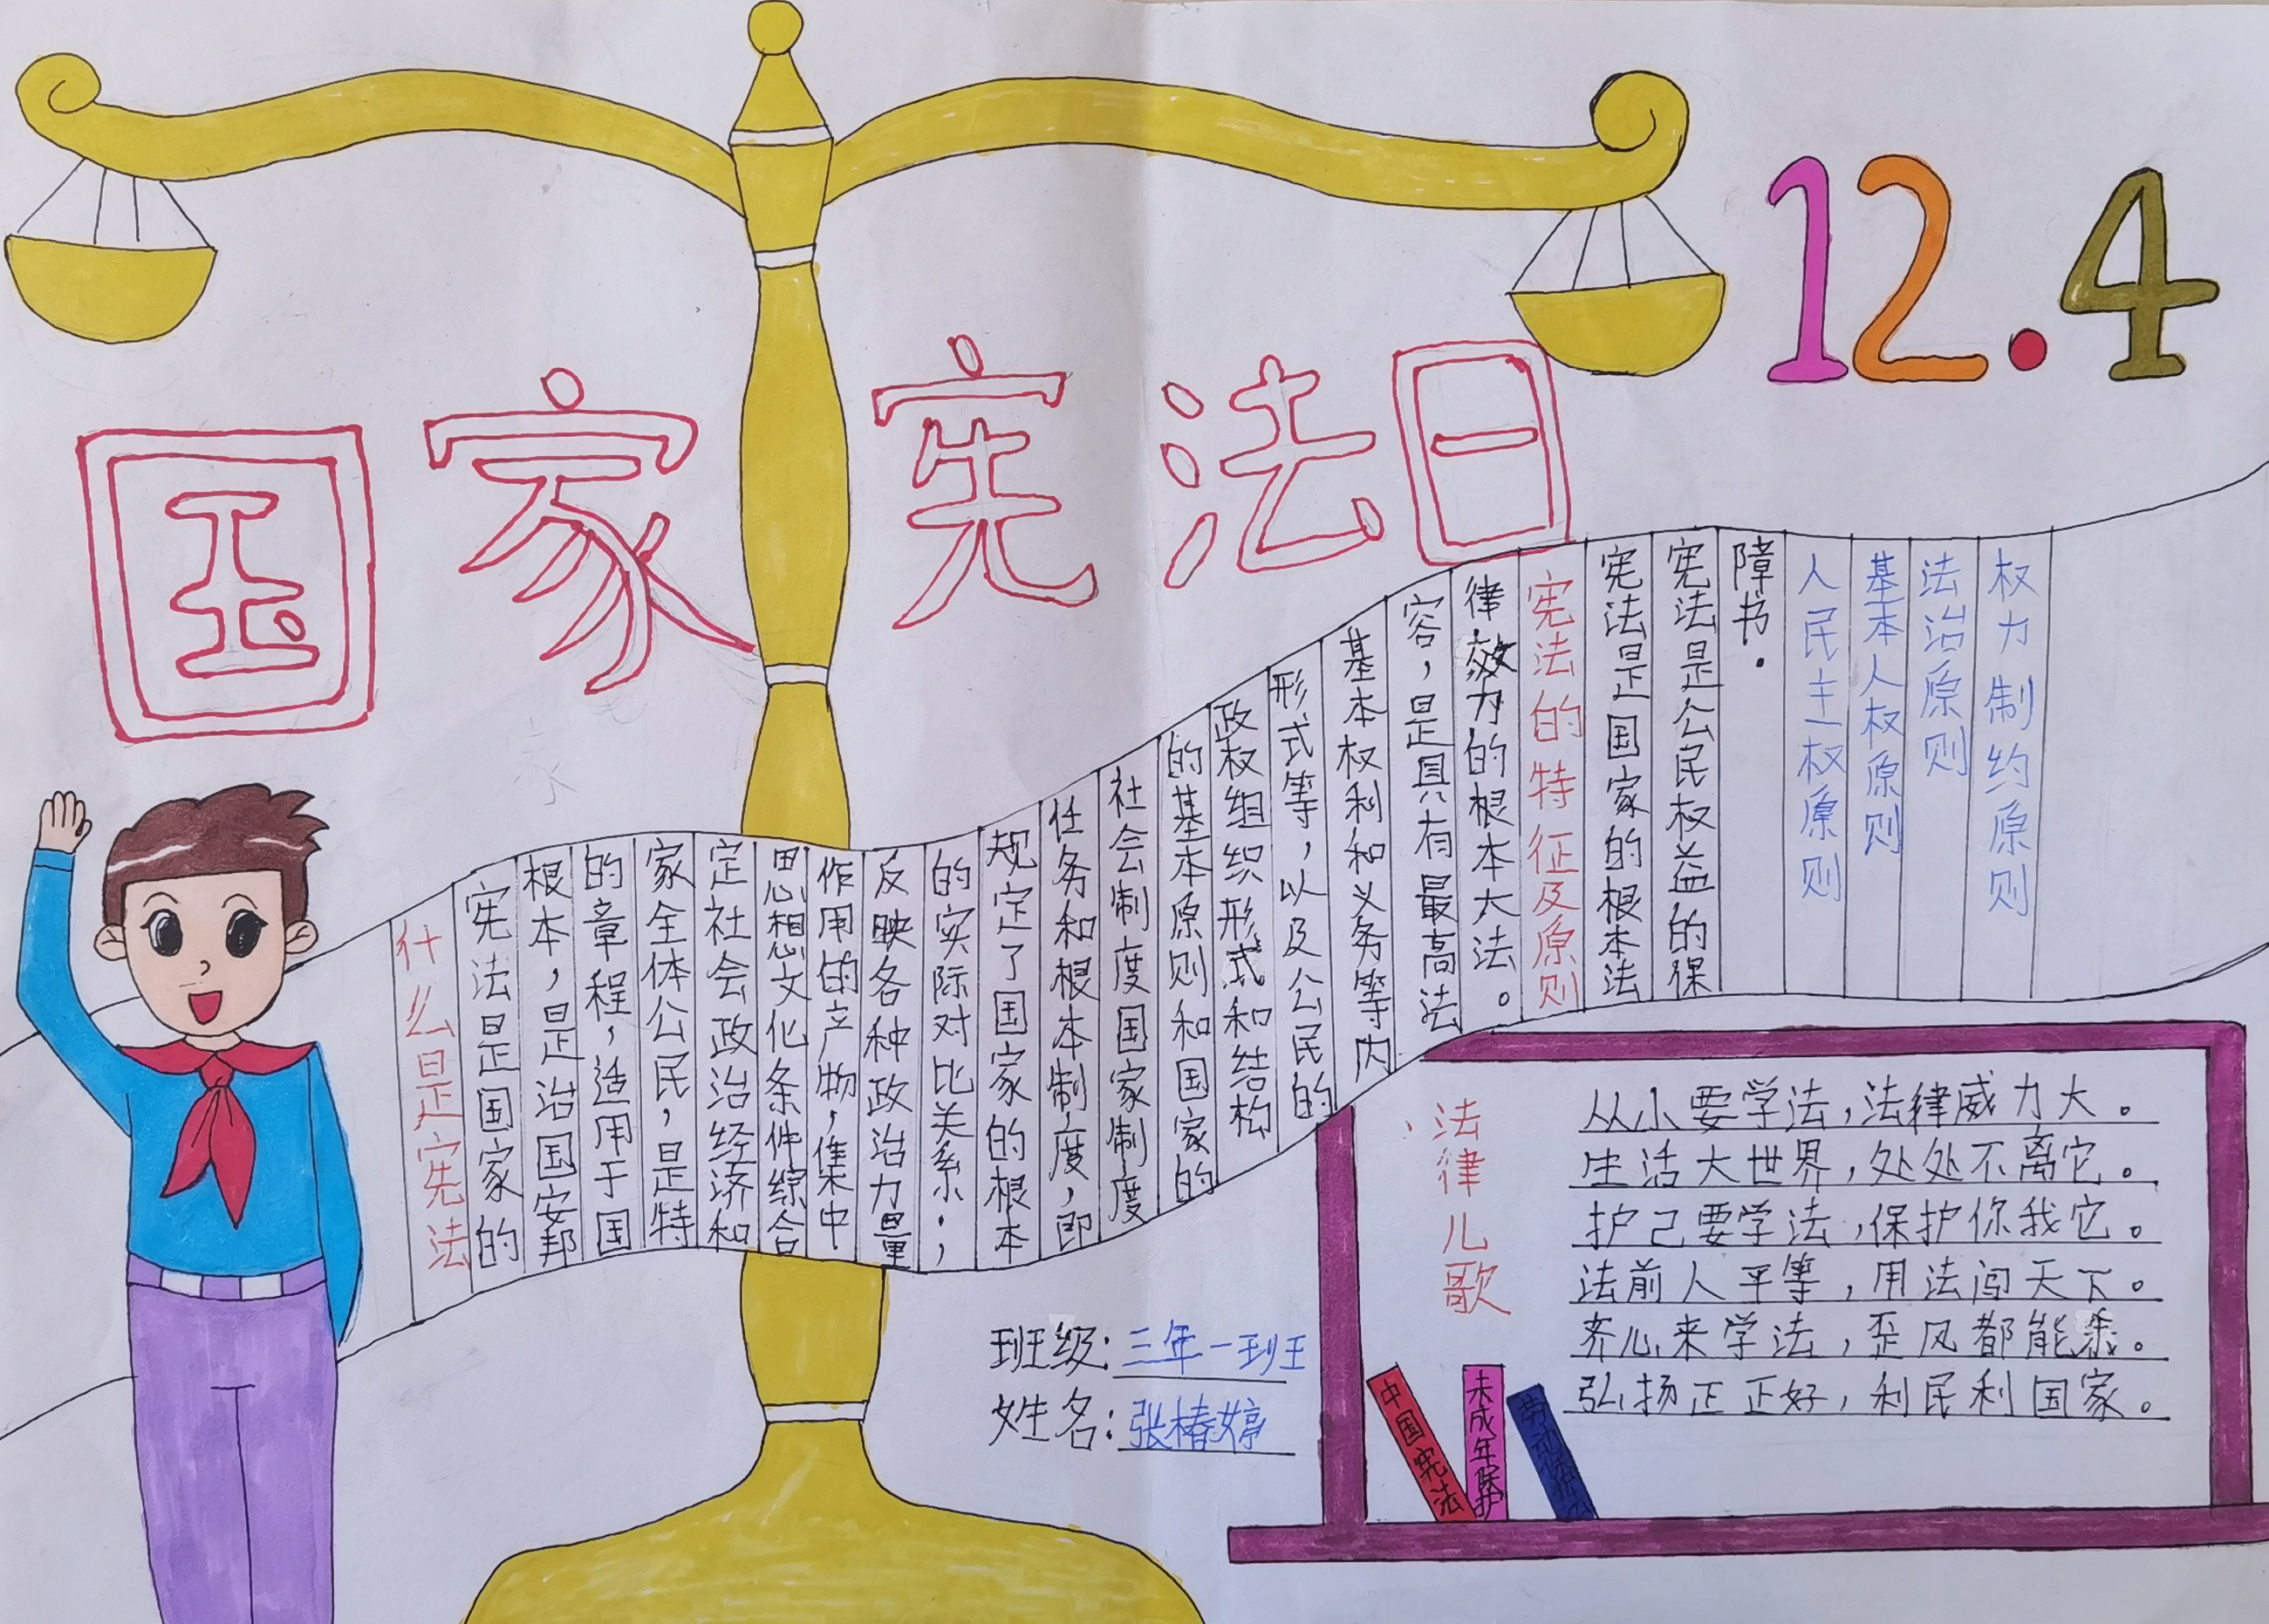 12.4
国家宪法日
什么是宪法
宪法是国家的
根本，是治国安邦
的章程，适用于国
家全体公民，是特
定社会政治经济和
思想文化条件综合
作用的产物，集中
反映各种政治力量
的实际对比关系.，
规定了国家的根本
任务和根本制度，即
社会制度国家制度
的基本原则和国家的
政权组织形式和结构
形式等，以及公民的
基本权利和义务等内
容，是具有最高法
律效力的根本大法。
宪法的特征及原则
宪法是国家的根本法
宪法是公民权益的保
障书.
人民主权原则
基本人权原则
法治原则
权力制约原则
法律儿歌
从小要学法，法律威力大。
生活大世界，处处不离它。
护己要学法，保护你我它。
法前人平等，用法闯天下。
齐心来学法，歪风都能杀。
弘扬正正好，利民利国家。
中国宪法
未成年保护
班级：三年一班
姓名：张椿婷